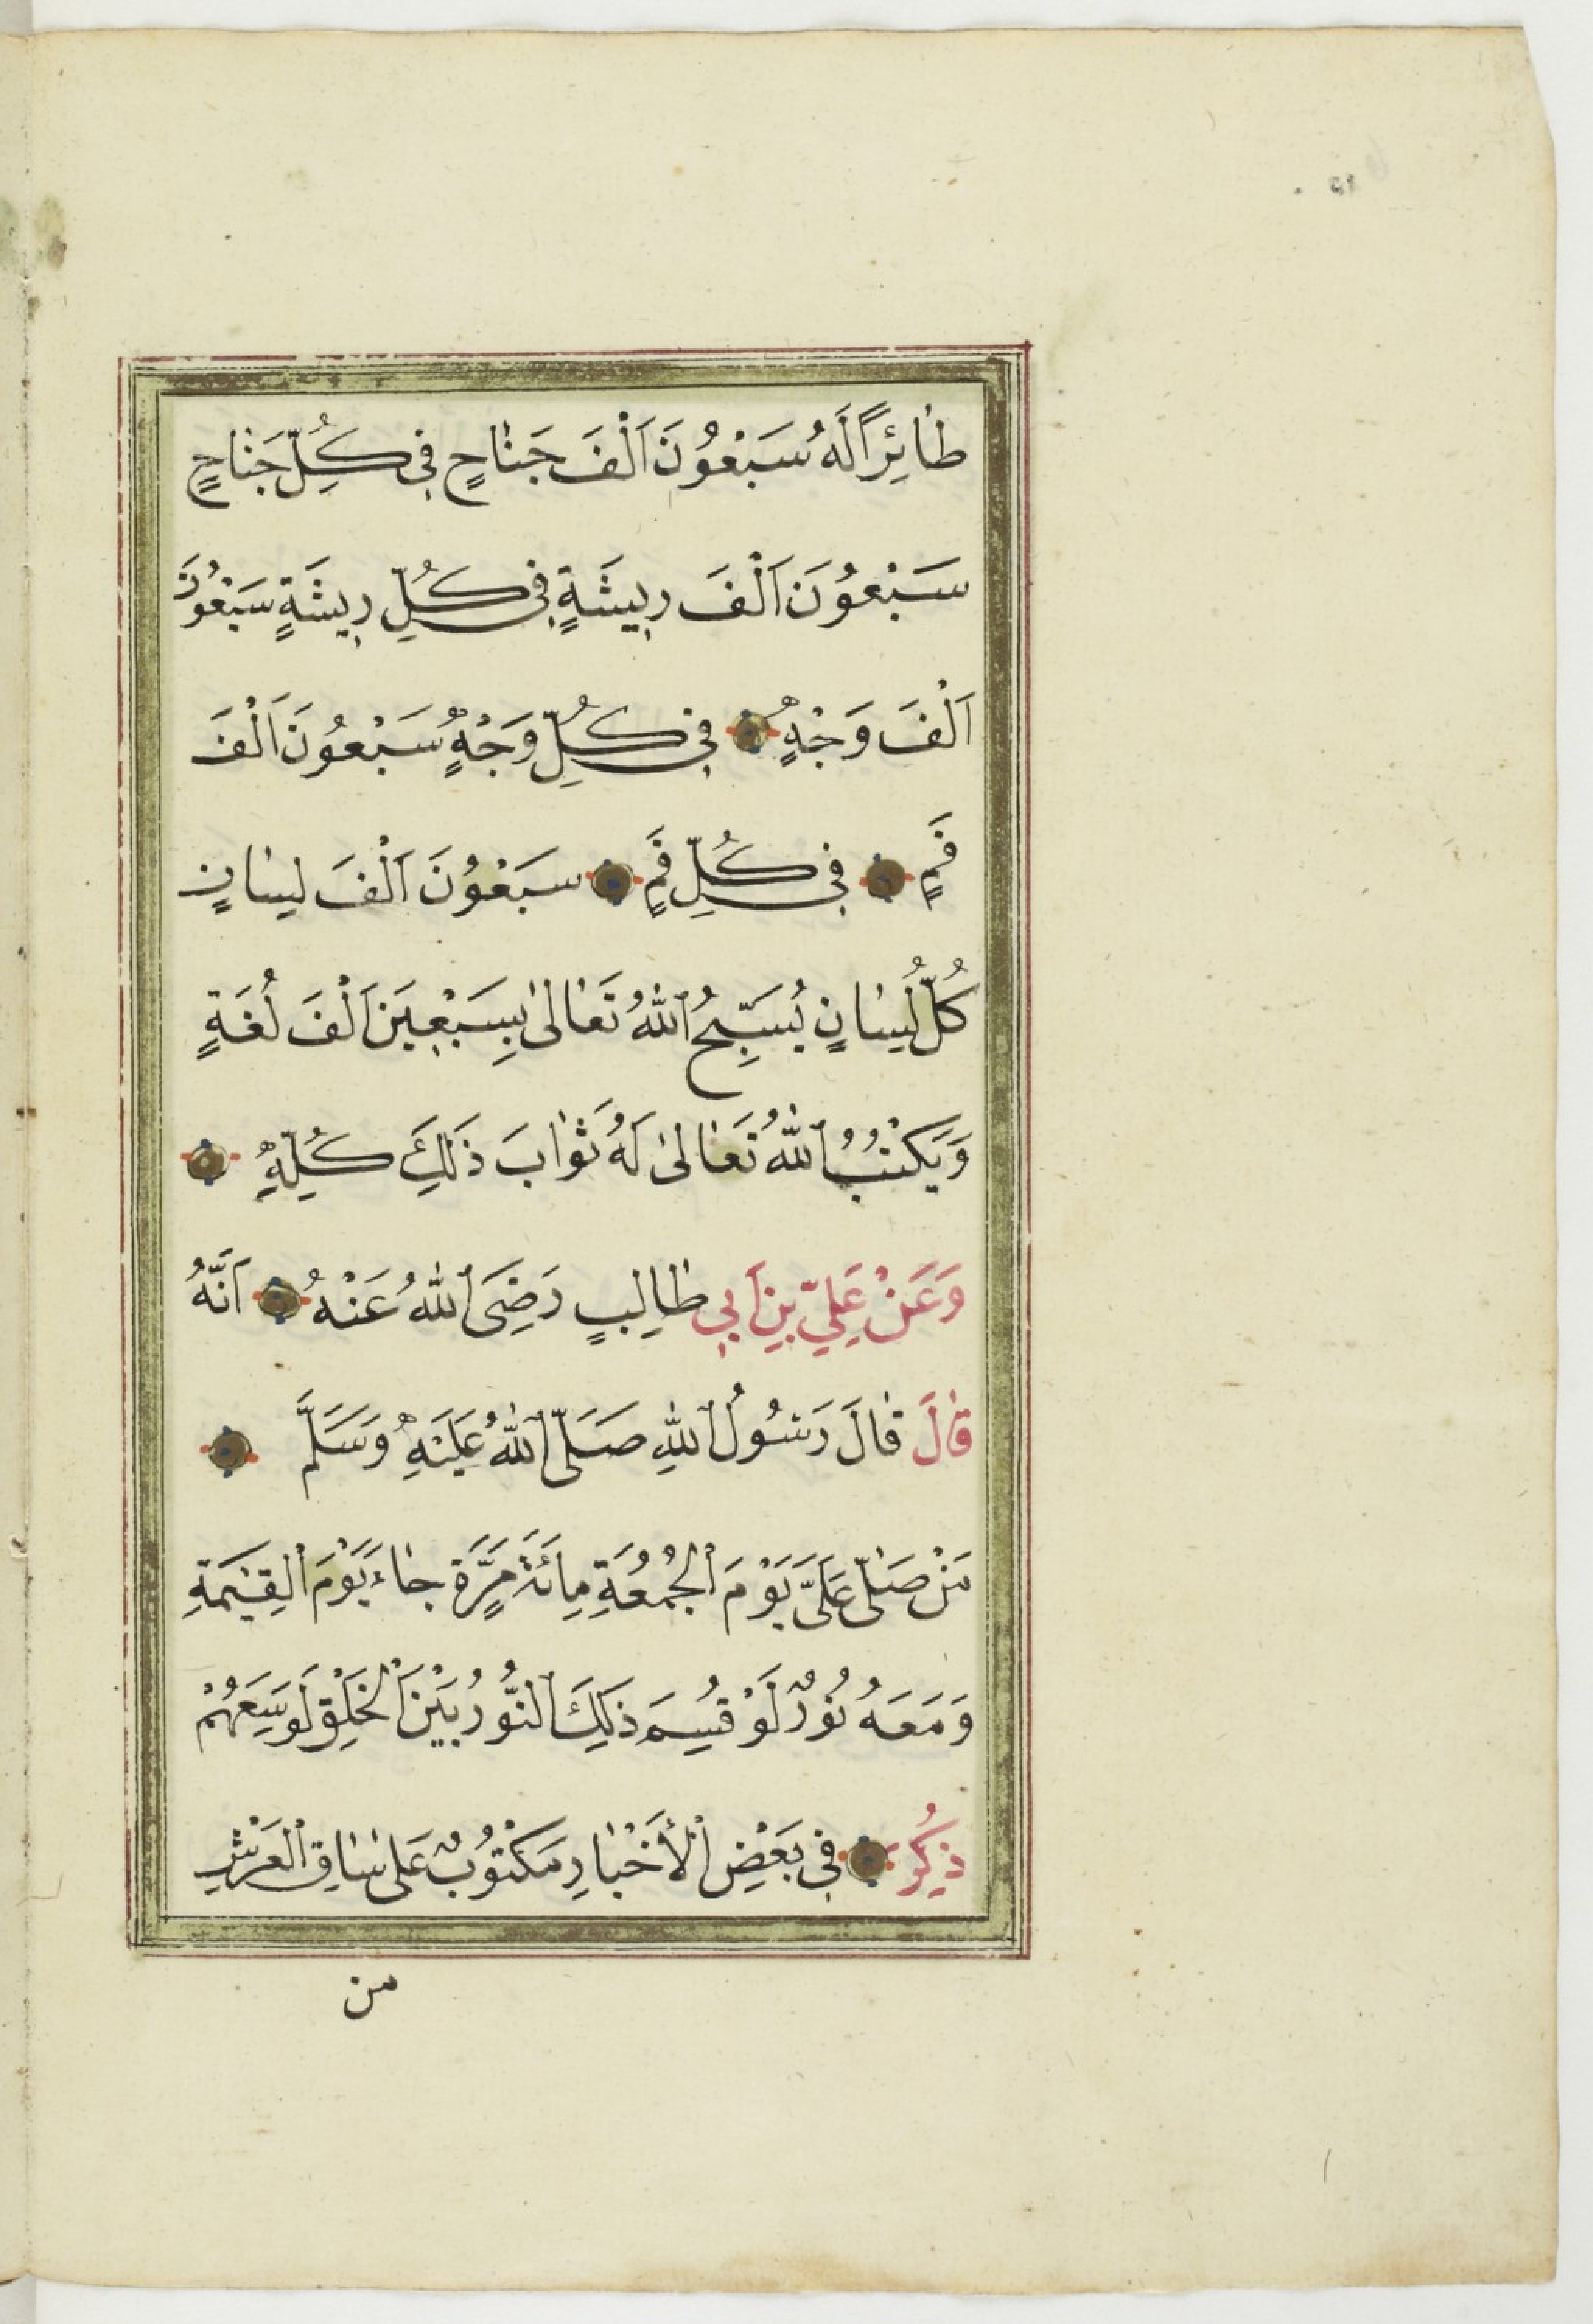 طَائِرًا لَهُ سَبْعُونَ اَلْفَ جَنَاحٍ فِي كُلِّ جَنَاحٍ
سَبْعُونَ اَلْفَ رِيشَةٍ فِي كُلِّ رِيشَةٍ سَبْعُونَ
اَلْفَ وَجْهٍ فِي كُلِّ وَجْهٍ سَبْعُونَ اَلْفَ
فَمٍ فِي كُلِّ فَمٍ سَبْعُونَ اَلْفَ لِسَانٍ
كُلُّ لِسَانٍ يُسَبِّحُ اللهُ تَعَالٰى بِسَبْعِينَ اَلْفَ لُغَةٍ
وَيَكْتُبُ اللهُ تَعَالٰى لَهُ ثَوَابَ ذَلِكَ كُلِّهِ
وَعَنْ عَلِيِّ بْنِ اَبِي طَالِبٍ رَضِيَ اللهُ عَنْهُ اَنَّهُ
قَالَ قَالَ رَسُولُ اللهِ صَلَّى اللهُ عَلَيْهِ وَسَلَّمَ
مَنْ صَلَّى عَلَيَّ يَوْمَ الْجُمُعَةِ مِائَةَ مَرَّةٍ جَاءَ يَوْمَ الْقِيٰمَةِ
وَمَعَهُ نُورٌ لَوْ قُسِمَ ذَلِكَ النُّورُ بَيْنَ الْخَلْقِ لَوَسِعَهُمْ
ذُكِرَ فِي بَعْضِ الْأَخْبَارِ مَكْتُوبٌ عَلَى سَاقِ الْعَرْشِ
من